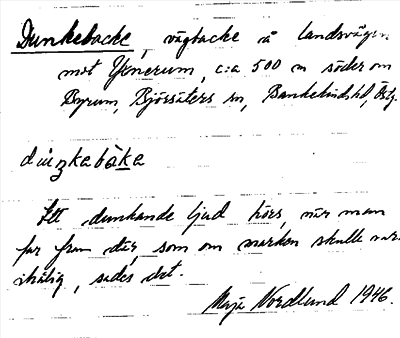 Dunkebacke, vägbacke å landsvägen
mot Yxnerum, c:a 500 m söder om
Byrum, Björsäters sn, Bankekinds hd, Östg.
Ett dunkande ljud höres, när man
far fram där, som om marken skulle vara
ihålig, sades det.
Maja Nordlund 1946.